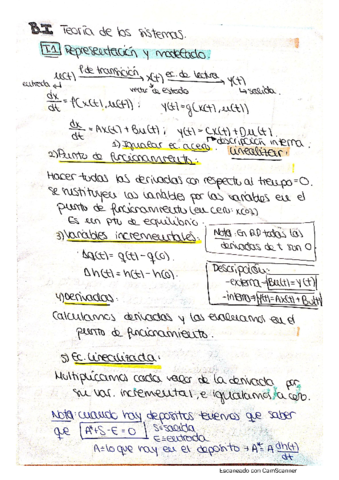 B.I Teoría de los sistemas.
T.1 Representación y modelado.
f de transición ec. de lectura
u(t) → x(t) → y(t)
entrada vector de estado salida
dx/dt = f(x(t), u(t)); y(t) = g(x(t), u(t))
dx/dt = Ax(t) + Bu(t); y(t) = Cx(t) + Du(t)
descripción interna
1) Igualar ec. a cero. Linealizar:
2) Punto de funcionamiento:
Hacer todas las derivadas con respecto al tiempo = 0.
Se sustituyen las variables por las variables en el
punto de funcionamiento (en cero: x(0))
Es un pto de equilibrio.
3) Variables incrementales
Δq(t) = q(t) - q(0)
Δh(t) = h(t) - h(0)
Nota: En P.F todas las
derivadas de t son 0
Descripción:
-externa
-interna
4) Derivadas:
Calculamos derivadas y las evaluamos en el
punto de funcionamiento.
5) Ec. Linealizada:
Multiplicamos cada valor de la derivada por
su var. incremental, e igualamos a cero.
Nota: cuando hay depósitos tenemos que saber
que A+S-E=0 S=salida
E=entrada
A=lo que hay en el depósito → A = A dh(t)/dt
Escaneado con CamScanner